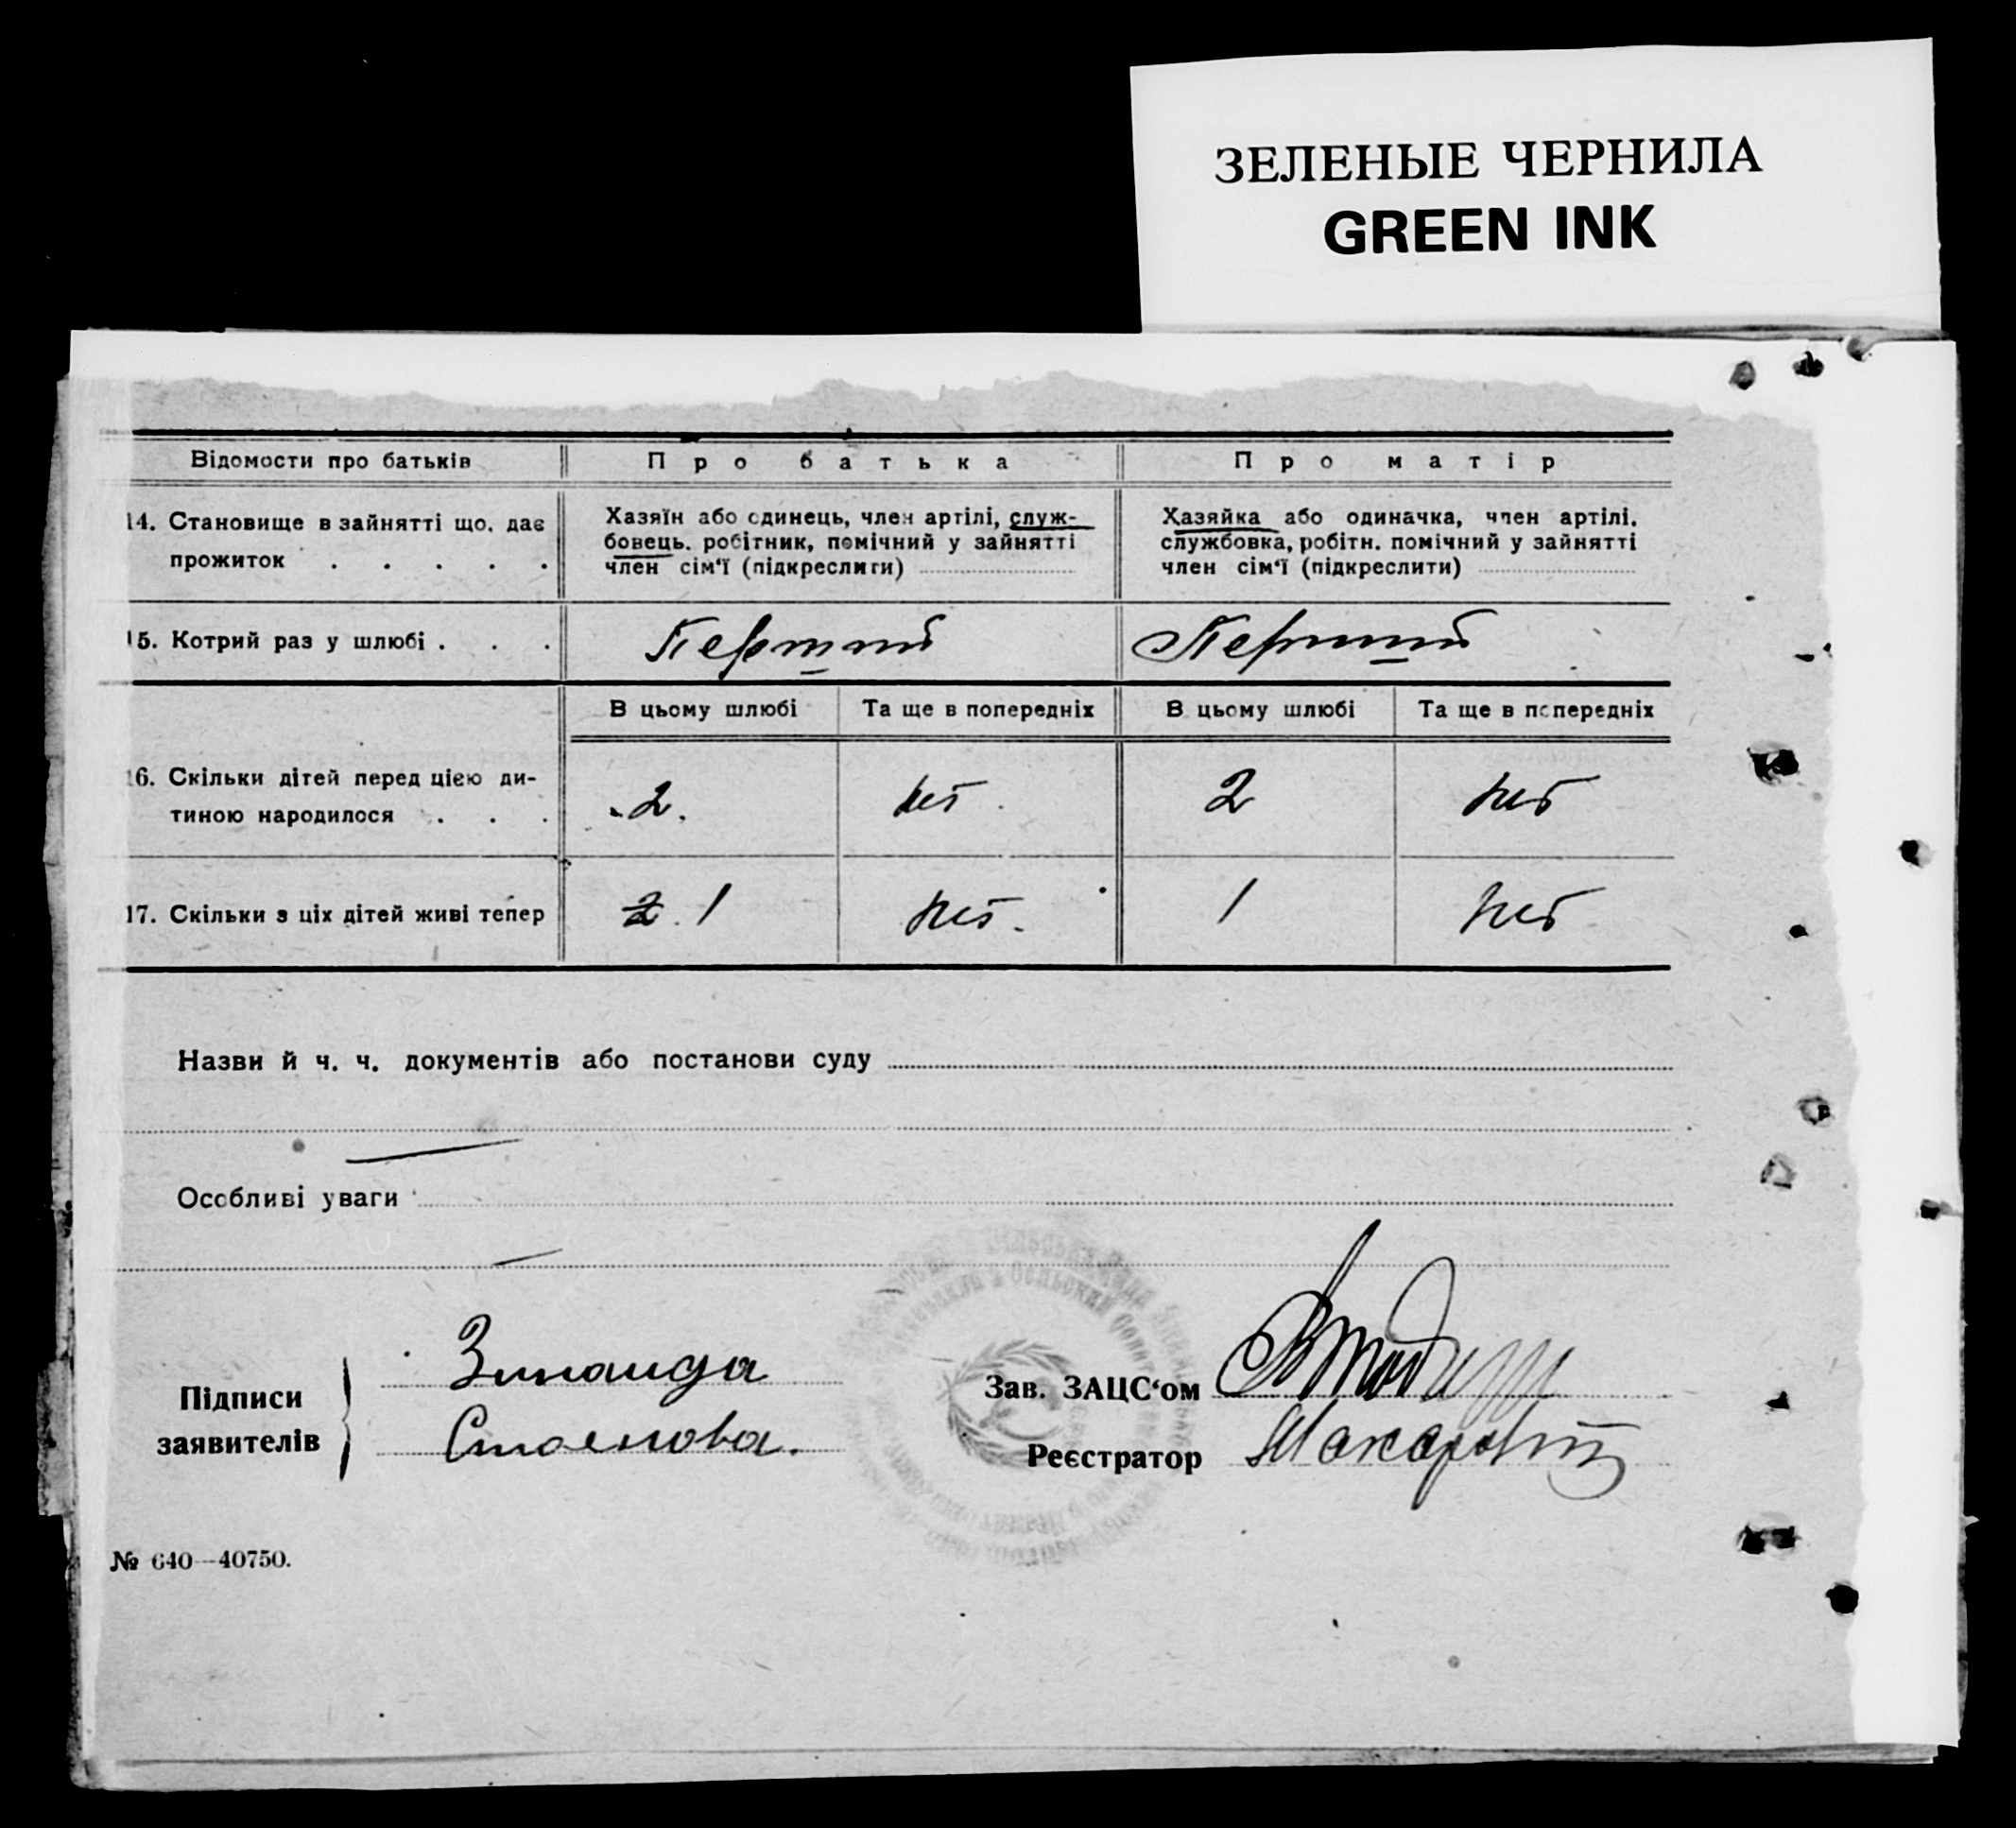 ЗЕЛЕНЫЕ ЧЕРНИЛА
GREEN INK
Відомости про батьків
Про батька
Про матір
14. Становище в зайнятті що, дає
прожиток . . . . .
Хазяїн або одинець, член артілі, служ-
бовець, робітник, помічний у зайнятті
член сім'ї (підкреслити)
Хазяйка або одиначка, член артілі,
службовка, робітн. помічний у зайнятті
член сім'ї (підкреслити)
15. Котрий раз у шлюбі . . .
Первий
Первий
В цьому шлюбі
Та ще в попередніх
В цьому шлюбі
Та ще в попередніх
16. Скільки дітей перед цією ди-
тиною народилося . . .
2.
нет
2
нет
17. Скільки з ціх дітей живі тепер
2. 1
нет.
1
нет
Назви й ч. ч. документів або постанови суду
Особливі уваги
Підписи
заявителів
Зинаида
Стоенова.
Зав. ЗАЦС'ом
Реєстратор
№ 640—40750.